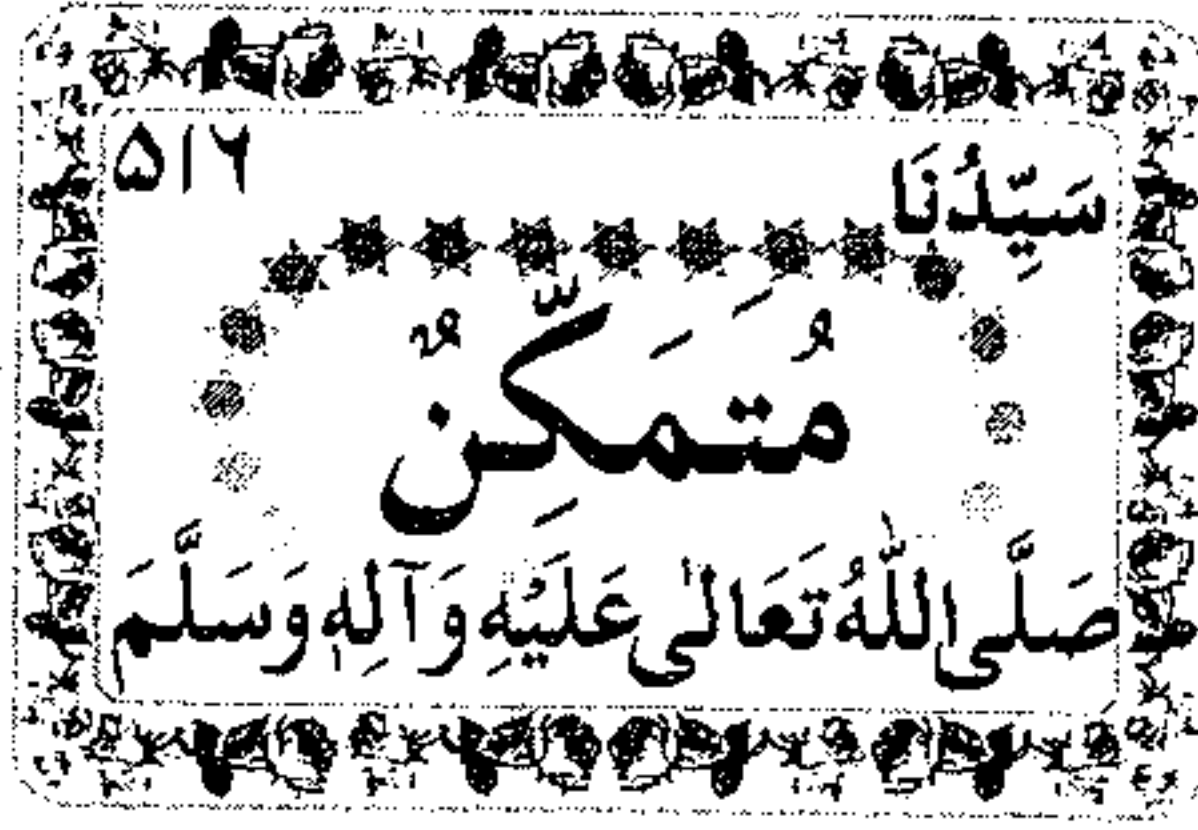 سَيِّدُنَا ۵۱۶
مُتَمَكِّنٌ
صَلَّى اللّٰهُ تَعَالٰى عَلَيْهِ وَآلِهٖ وَسَلَّمَ